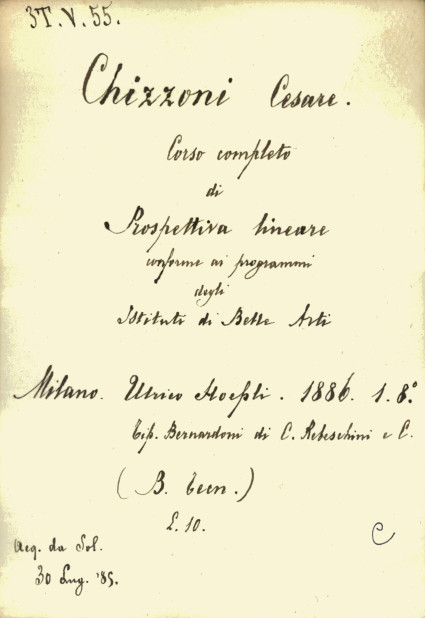 3T.V.55.
Chizzoni Cesare.
Corso completo
di
Prospettiva lineare
conforme ai programmi
degli
Istituti di Belle Arti
Milano. Ulrico Hoepli. 1886. 1. 8.º
Tip. Bernardoni di C. Rebeschini e C.
(B. tecn.)
L. 10.
C
Acq. da Sol.
30 Lug. '85.